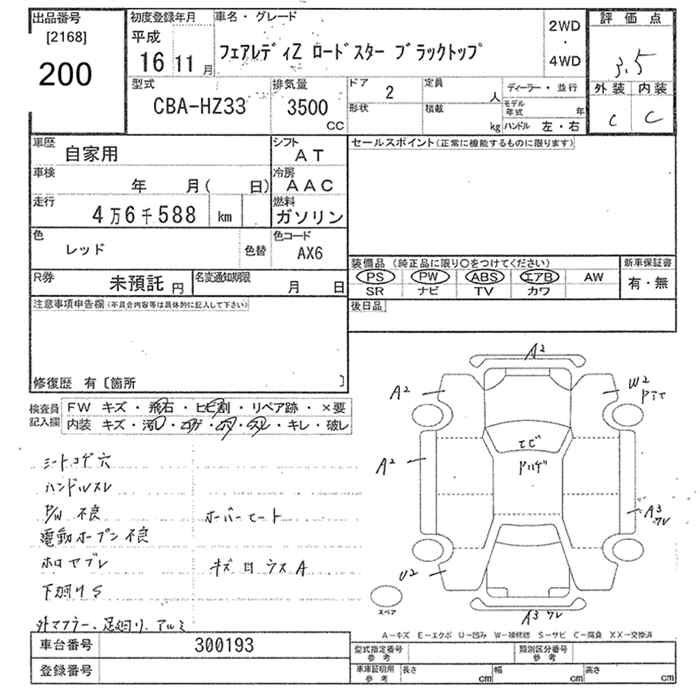 出品番号 [2168] 200
初度登録年月 平成 16年 11月
車名・グレード フェアレディZ ロードスター ブラックトップ
2WD ・ 4WD
評価点 3.5
外装 内装
C C
型式 CBA-HZ33
排気量 3500 CC
ドア 2 定員 人
形状 積載 kg
ディーラー・並行
モデル年式 年
ハンドル 左・右
車歴 自家用
シフト AT
セールスポイント(正常に機能するものに限ります)
車検 年 月( 日)
冷房 AAC
走行 4万6千588 km
燃料 ガソリン
色 レッド 色替
色コード AX6
装備品 (純正品に限り○をつけてください)
新車保証書 有・無
PS PW ABS エアB AW
SR ナビ TV カワ
R券 未預託 円
名変通知期限 月 日
後日品
注意事項申告欄(※具合内容等は具体的に記入して下さい)
修復歴 有〔箇所 〕
検査員記入欄
FW キズ・飛石・ヒビ割・リペア跡・×要
内装 キズ・汚レ・コゲ・穴・スレ・キレ・破レ
シートコゲ穴
ハンドルスレ
P/W 不良
電動オープン不良
ホロヤブレ
下廻りS
外マフラー、足廻り、アルミ
オーバーヒート
キズ凹ウスA
A2
A2
W2
A2
トビ
A3
U2
A3
スペア
A－キズ E－エクボ U－凹み W－補修跡 S－サビ C－腐食 XX－交換済
車台番号 300193
型式指定番号 参考
類別区分番号 参考
登録番号
車庫証明用 参考 長さ cm 幅 cm 高さ cm